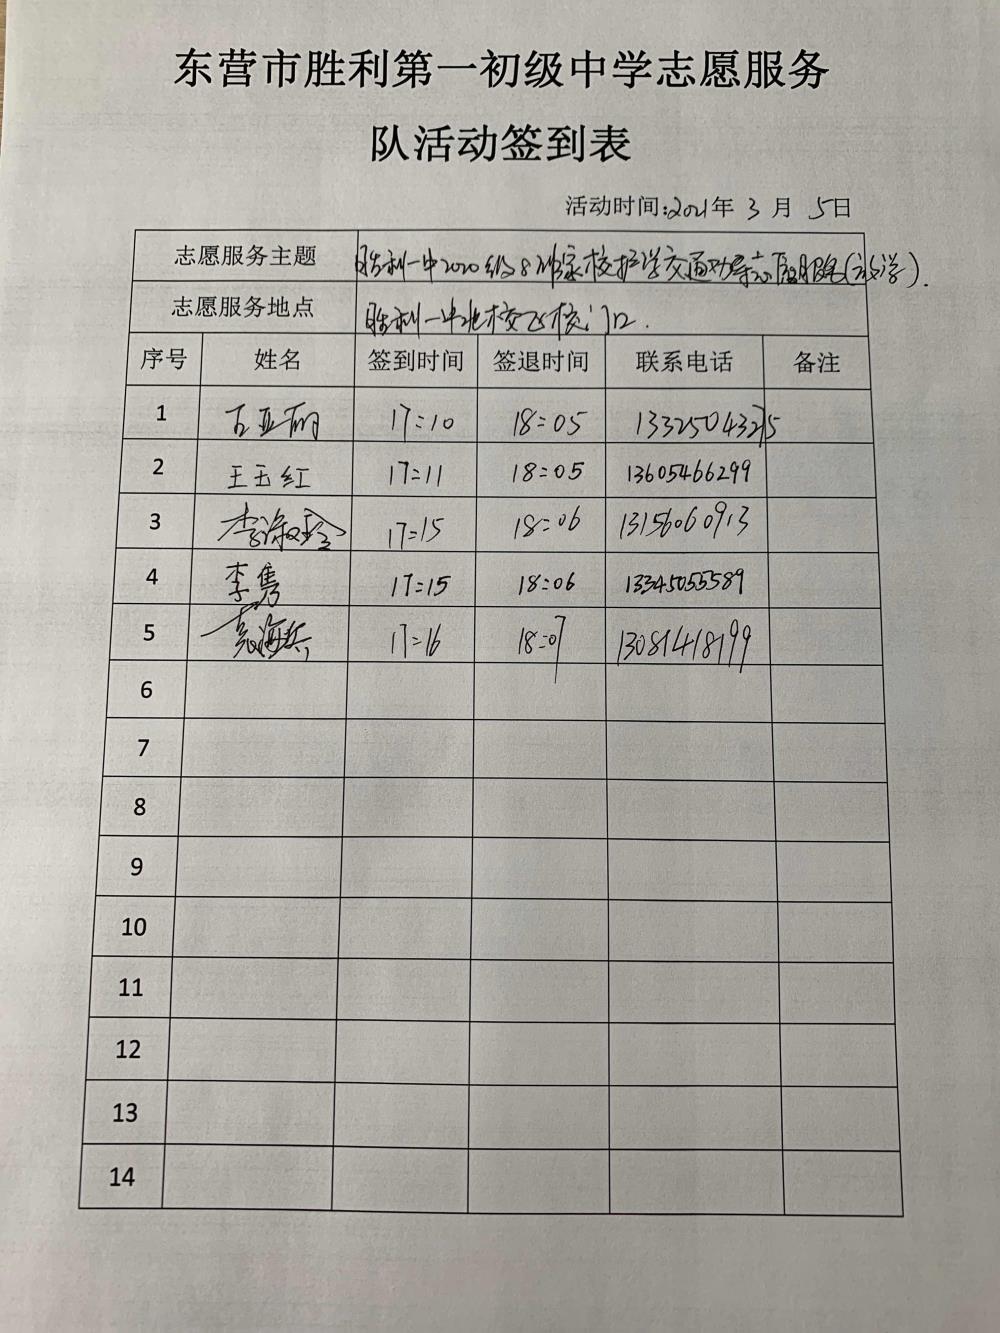 东营市胜利第一初级中学志愿服务
队活动签到表
活动时间:2021年 3 月 5日
志愿服务主题 胜利一中2020级8班家校护学交通劝导志愿服务(放学).
志愿服务地点 胜利一中北校区校门口.
序号 姓名 签到时间 签退时间 联系电话 备注
1 17:10 18:05 13325504325
2 王玉红 17:11 18:05 13605466299
3 李淑玲 17:15 18:06 13156060913
4 李隽 17:15 18:06 13345055589
5 17:16 18:07 13081418199
6
7
8
9
10
11
12
13
14